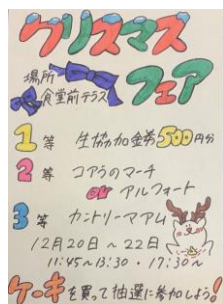 クリスマス
場所
食堂前テラス
フェア
1等 生協加金券500円分
2等 コアラのマーチ
or アルフォート
3等 カントリーマアム
12月20日〜22日
11:45〜13:30・17:30〜
ケーキを買って抽選に参加しよう!